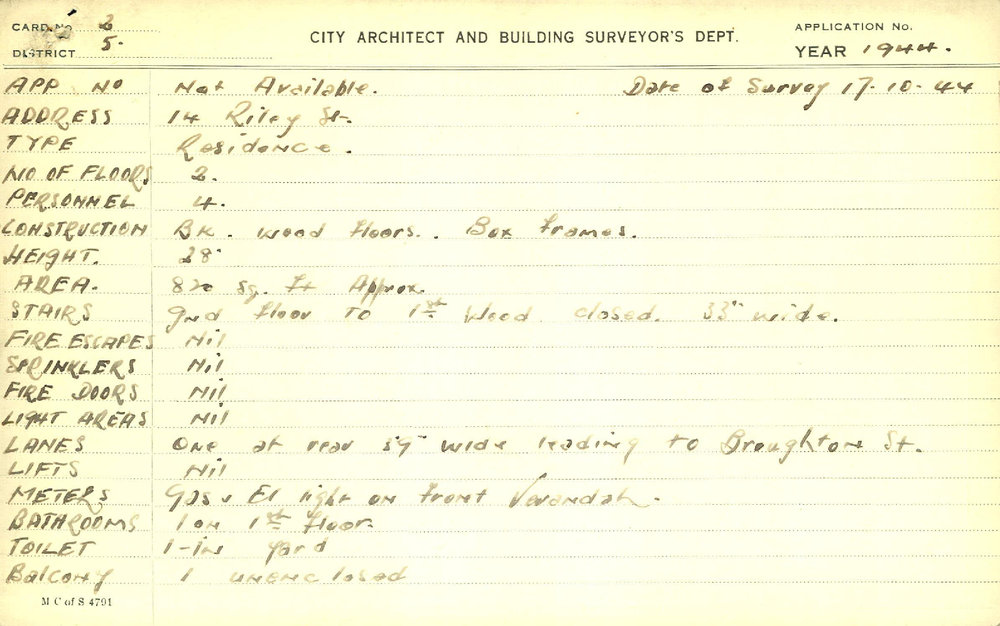 CARD No. 2
DISTRICT 5.
CITY ARCHITECT AND BUILDING SURVEYOR'S DEPT.
APPLICATION No.
YEAR 1944.
APP. NO Not Available. Date of Survey 17-10-44
ADDRESS 14 Riley St.
TYPE Residence.
NO OF FLOORS 2.
PERSONNEL 4.
CONSTRUCTION BK. wood floors. Box Frames.
HEIGHT. 28'
AREA. 820 sq. Ft Approx.
STAIRS gnd floor to 1st Wood closed. 33" wide.
FIRE ESCAPES Nil
SPRINKLERS Nil
FIRE DOORS Nil
LIGHT AREAS Nil
LANES One at rear 5'9" wide leading to Broughton St.
LIFTS Nil
METERS Gas & El light on front Verandah.
BATHROOMS 1 on 1st floor.
TOILET 1-in yard
Balcony 1 unenclosed
M C of S 4791